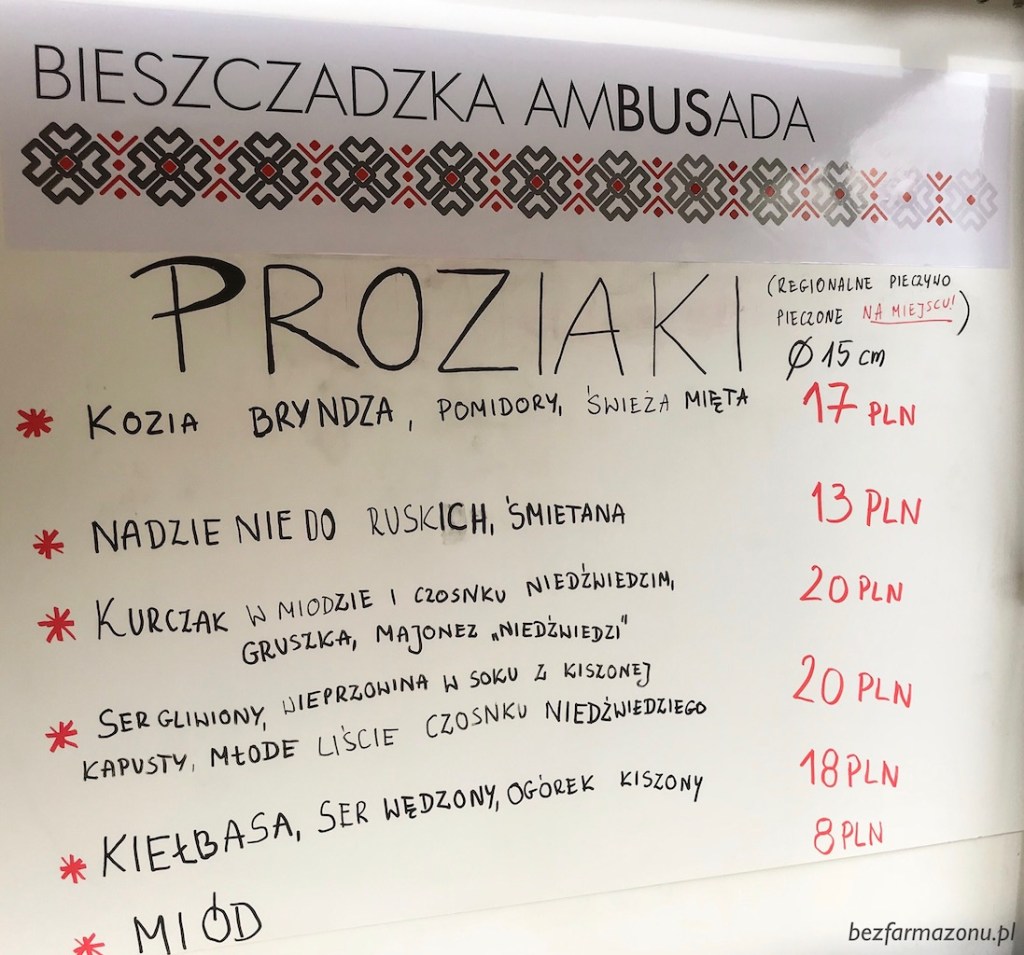 BIESZCZADZKA AMBUSADA
PROZIAKI
(REGIONALNE PIECZYWO
PIECZONE NA MIEJSCU!)
Ø 15 cm
* KOZIA BRYNDZA, POMIDORY, ŚWIEŻA MIĘTA 17 PLN
* NADZIENIE DO RUSKICH, ŚMIETANA 13 PLN
* KURCZAK W MIODZIE I CZOSNKU NIEDŹWIEDZIM, 20 PLN
GRUSZKA, MAJONEZ „NIEDŹWIEDZI"
* SER GLIWIONY, WIEPRZOWINA W SOKU Z KISZONEJ 20 PLN
KAPUSTY, MŁODE LIŚCIE CZOSNKU NIEDŹWIEDZIEGO
* KIEŁBASA, SER WĘDZONY, OGÓREK KISZONY 18 PLN
* MIÓD 8 PLN
bezfarmazonu.pl